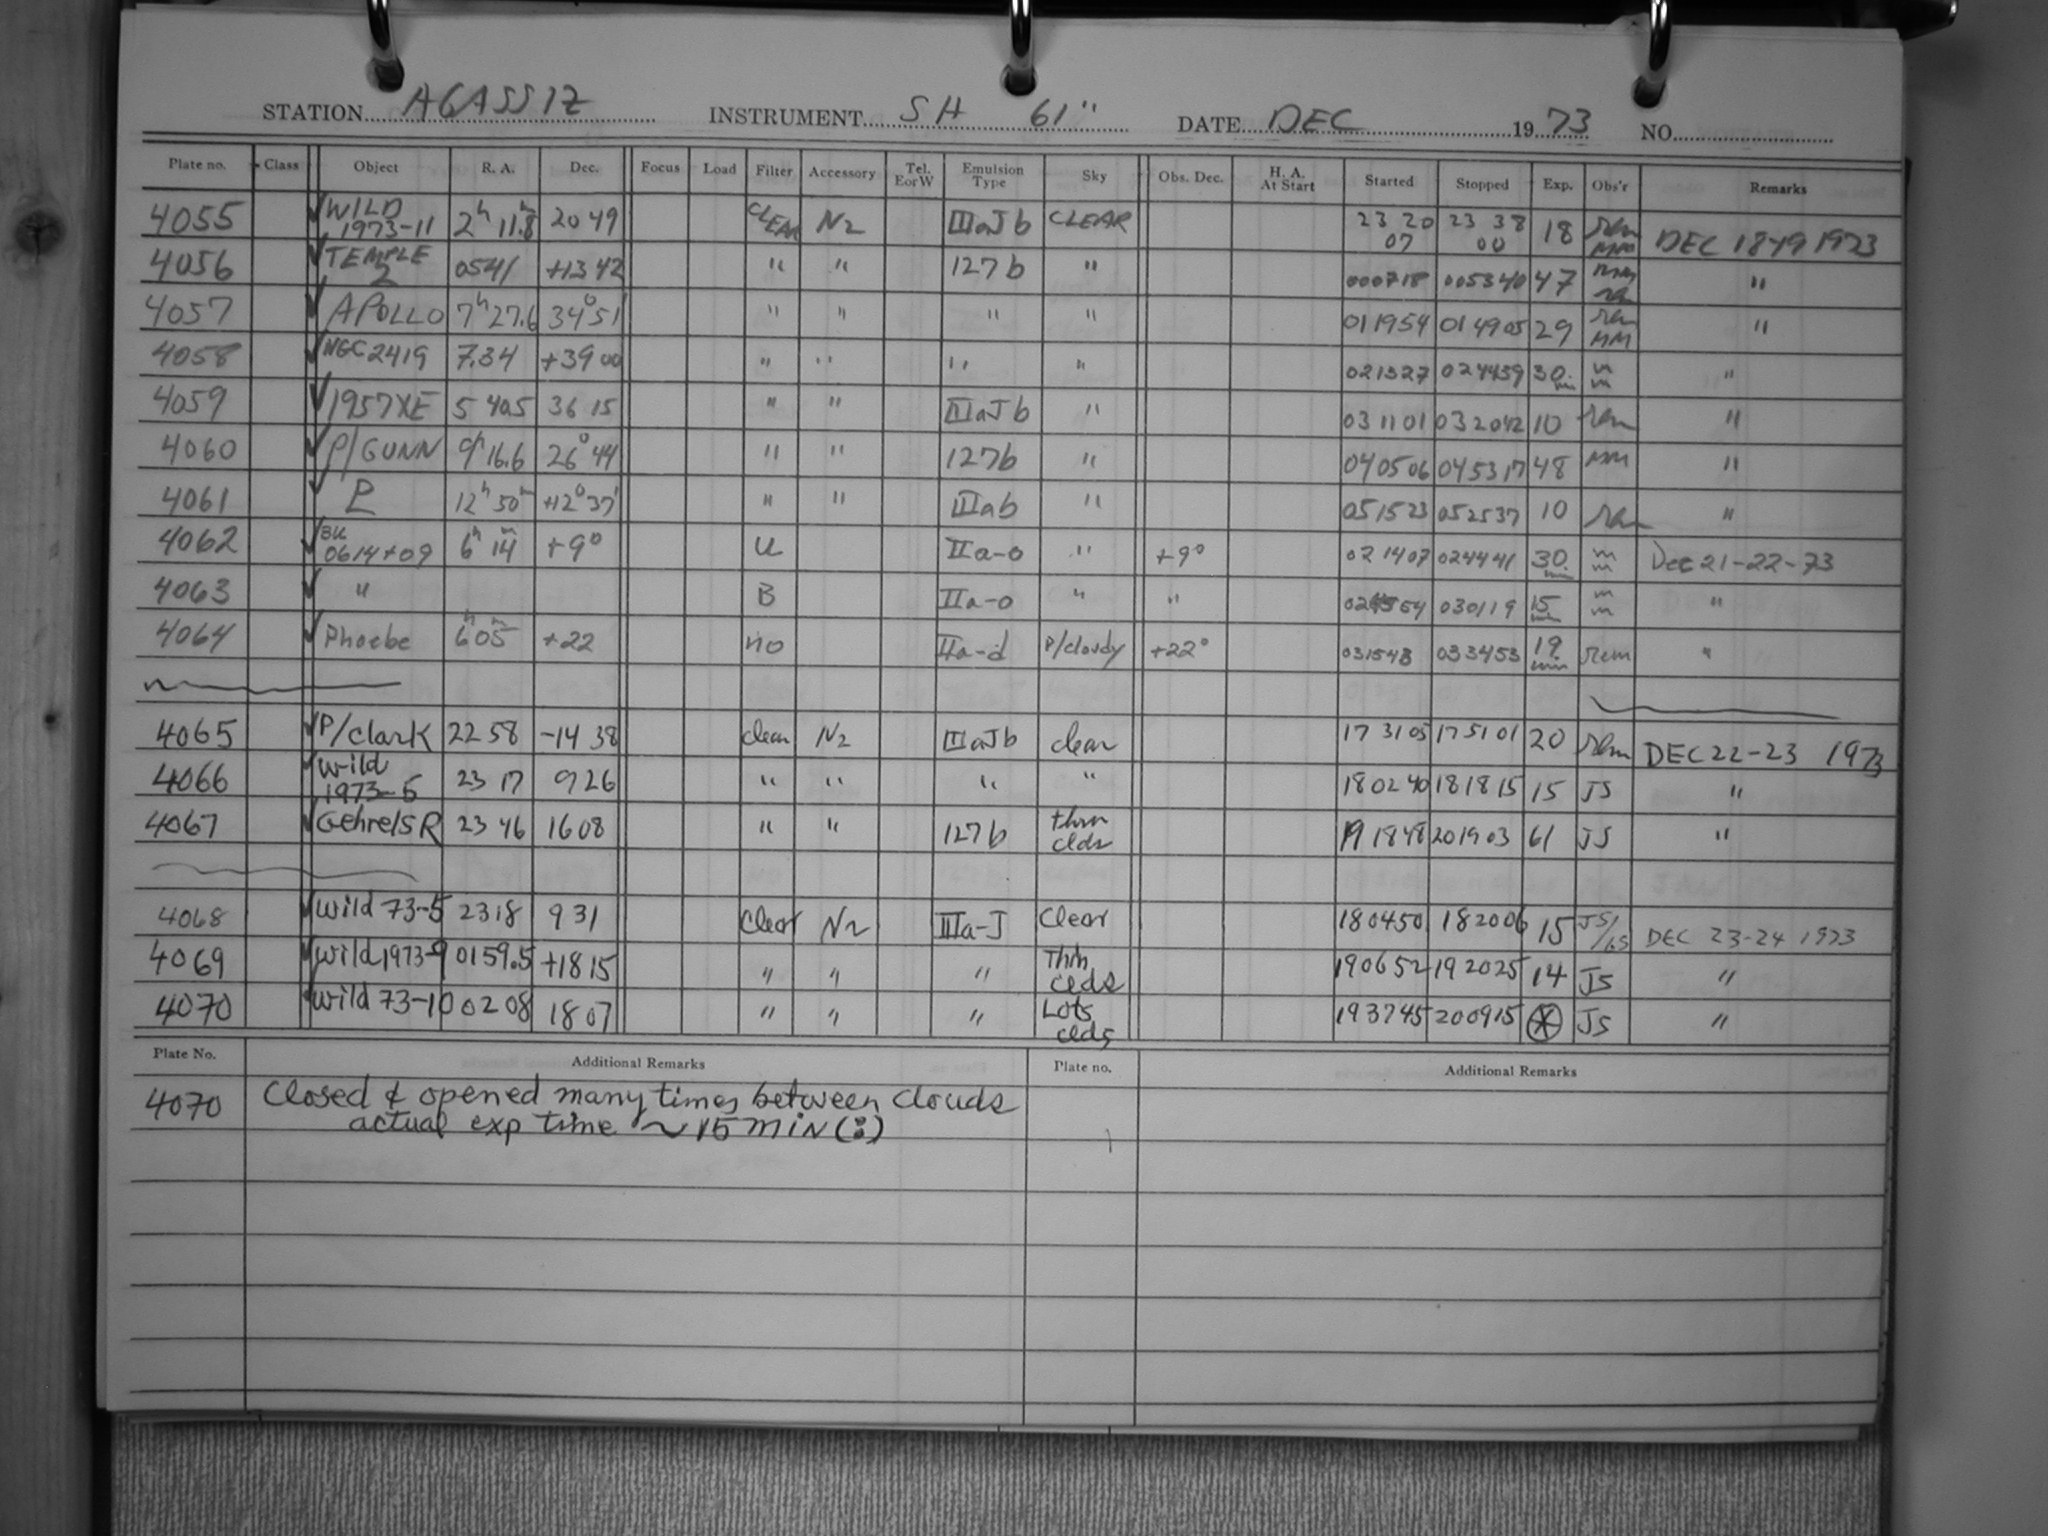 STATION AGASSIZ INSTRUMENT SH 61" DATE DEC 1973 NO.
Plate no. Class Object R. A. Dec. Focus Load Filter Accessory Tel. E or W Emulsion Type Sky Obs. Dec. H. A. At Start Started Stopped Exp. Obs'r Remarks
4055 ✓ WILD 1973-11 2h 11.8m 20 49 CLEAR N2 IIIaJb CLEAR 23 20 07 23 38 00 18 rem MM DEC 18-19 1973
4056 ✓ TEMPLE 2 0541 +13 42 " " 127b " 000718 005340 47 MM rem "
4057 ✓ APOLLO 7h 27.6 34° 51' " " " " 011954 014905 29 rem MM "
4058 ✓ NGC 2419 7.34 +39 00 " " " " 021327 024459 30 min "
4059 ✓ 1957XE 5 40.5 36 15 " " IIIaJb " 031101 032042 10 rem "
4060 ✓ P/GUNN 9h 16.6 26° 44 " " 127b " 040506 045317 48 MM "
4061 ✓ 12h 50m +12° 37' " " IIIab " 051523 052537 10 rem "
4062 ✓ 0614+09 6h 14m +9° U IIa-o " +9° 021407 024441 30 min Dec 21-22-73
4063 ✓ " B IIa-o " " 030119 15 min "
4064 ✓ Phoebe 6h 05m +22 no IIa-d P/cloudy +22° 031548 033453 19 min rem "
4065 ✓ P/Clark 22 58 -14 38 clear N2 IIIaJb clear 17 31 05 17 51 01 20 rem DEC 22-23 1973
4066 ✓ Wild 1973-5 23 17 9 26 " " " " 18 02 40 18 18 15 15 JS "
4067 ✓ Gehrels R 23 46 16 08 " " 127b thin clds 19 18 48 20 19 03 61 JS "
4068 ✓ Wild 73-5 2318 9 31 Clear N2 IIIa-J Clear 180450 182006 15 JS/ DEC 23-24 1973
4069 ✓ Wild 1973-9 0159.5 +18 15 " " " Thin clds 190652 192025 14 JS "
4070 ✓ Wild 73-10 02 08 18 07 " " " Lots clds 193745 200915 * JS "
Plate No. Additional Remarks Plate no. Additional Remarks
4070 Closed & opened many times between clouds
actual exp time ~ 15 min (:)